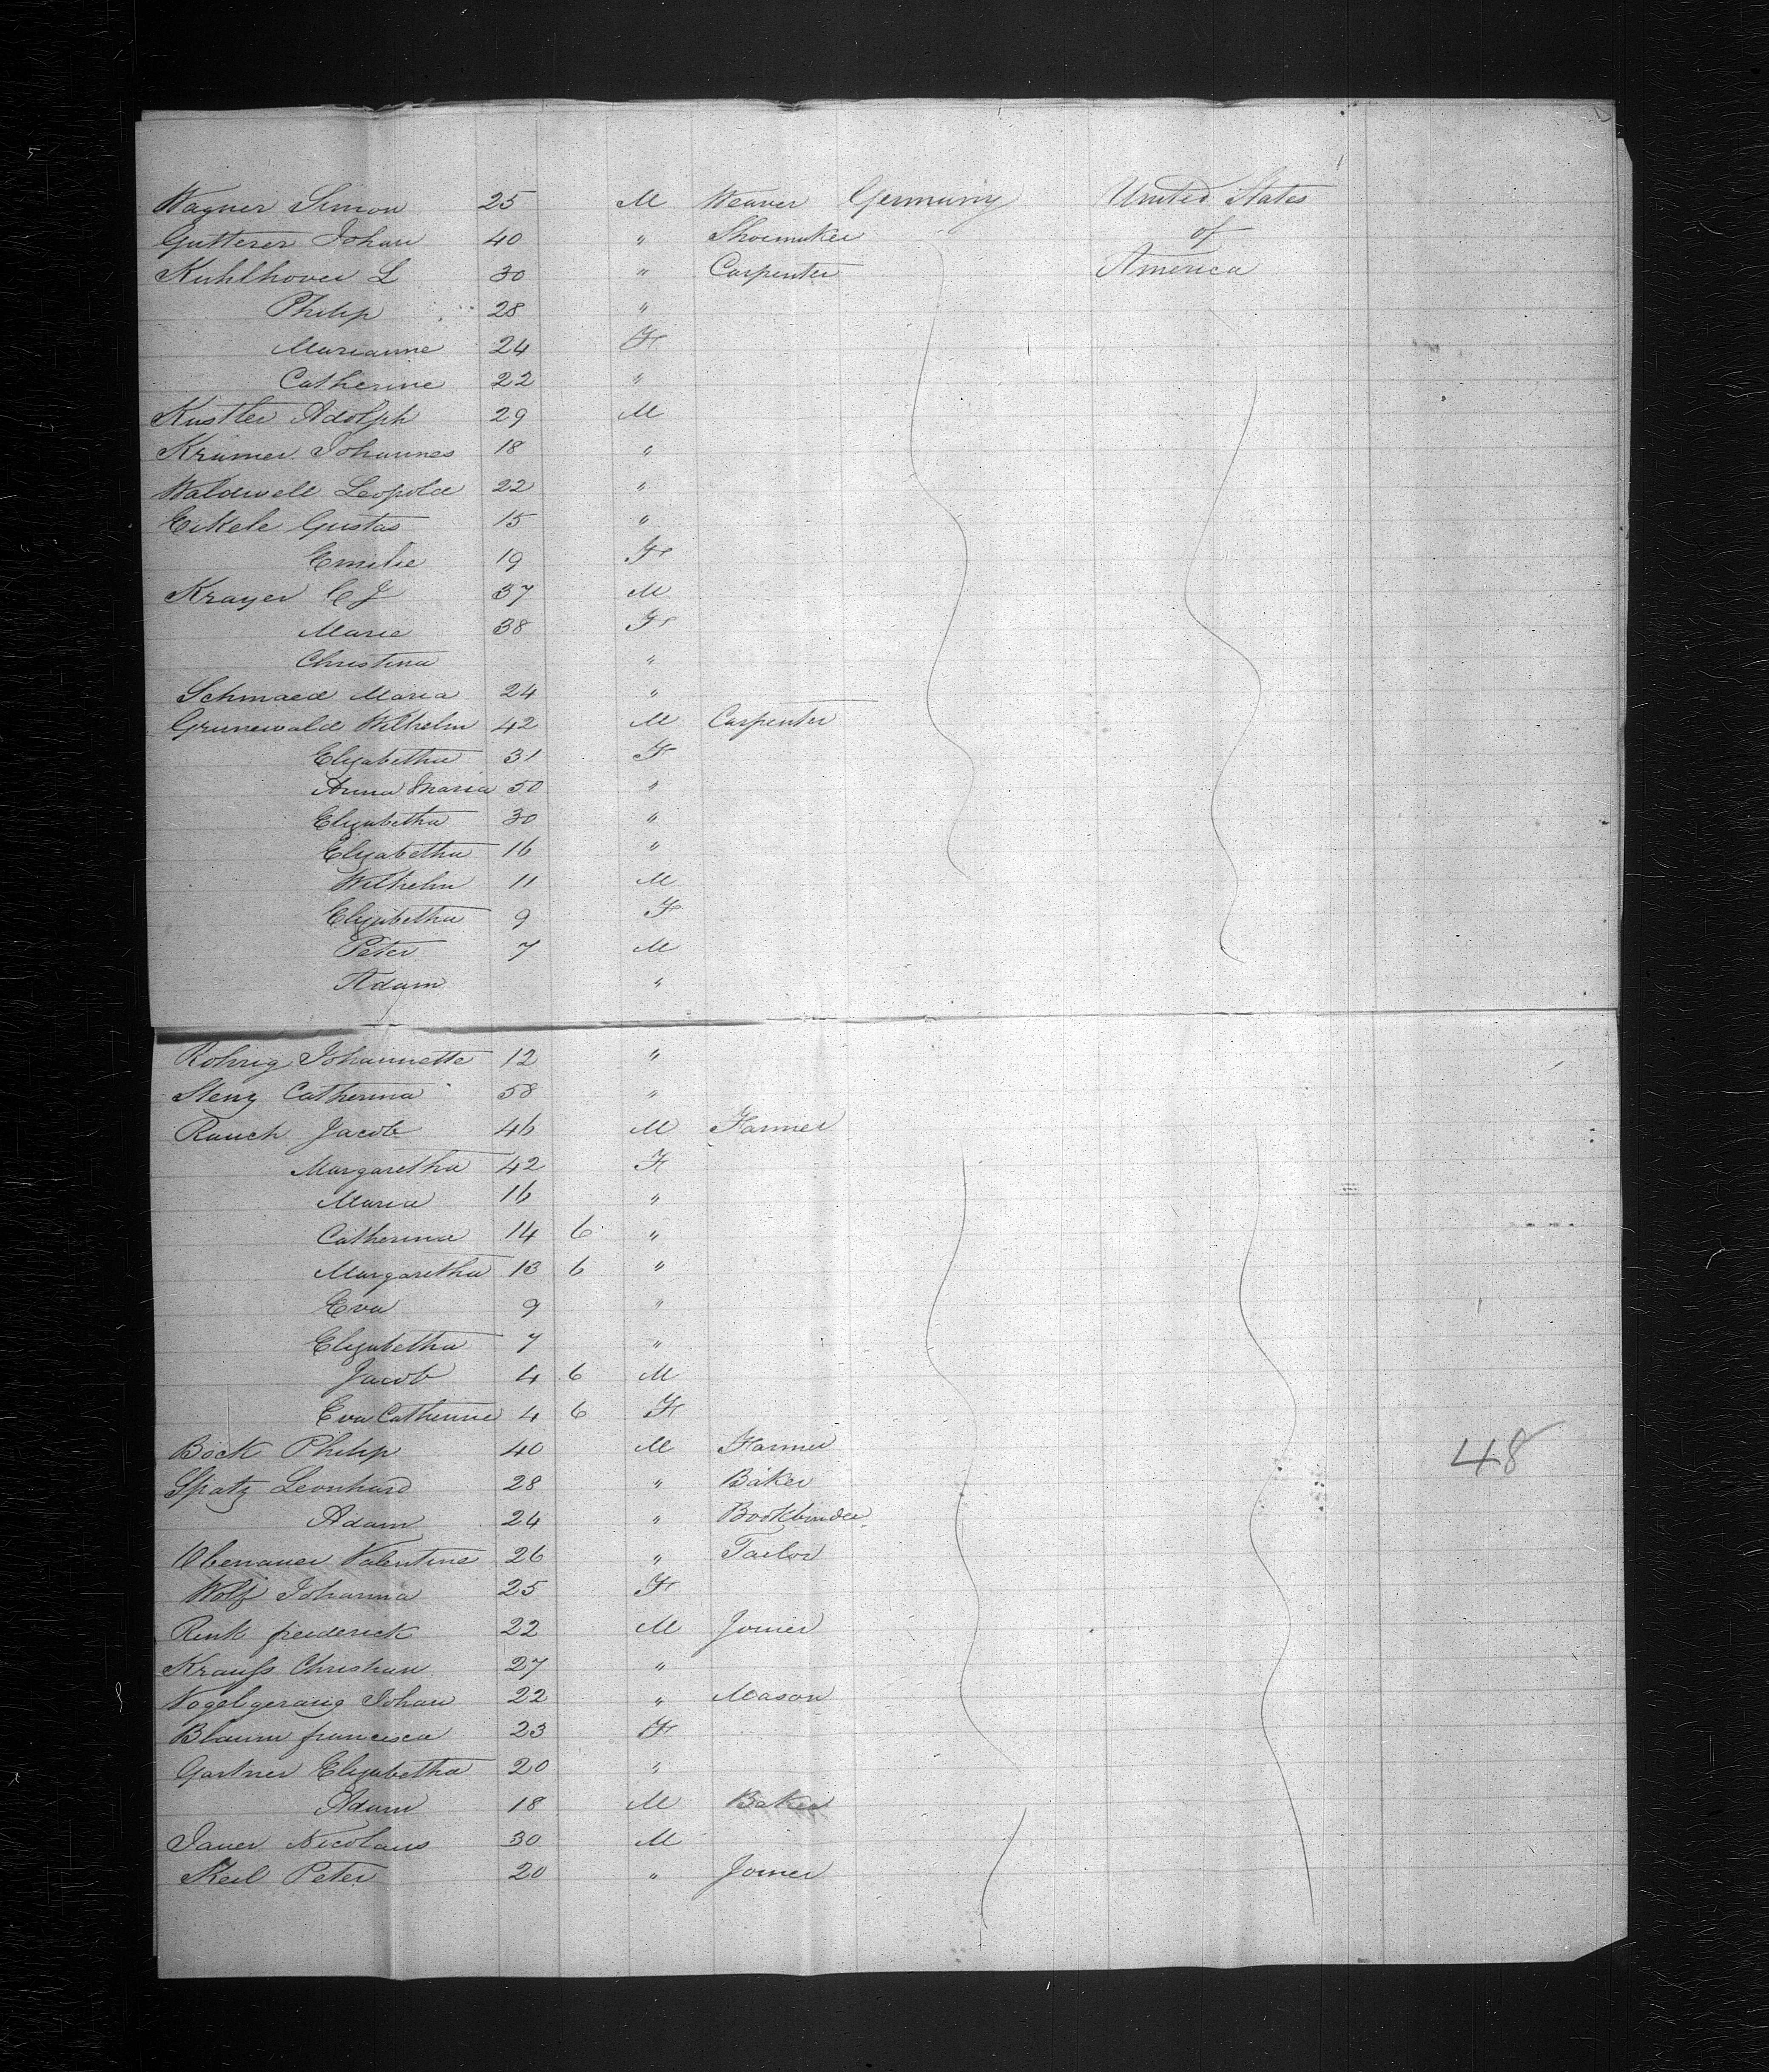 Wagner Simon 25 M Weaver Germany United States
Gutterer Johan 40 " Shoemaker of
Kuhlhover L 30 " Carpenter America
Philip 28 "
Marianne 24 F
Catherine 22 "
Kustler Adolph 29 M
Kramer Johannes 18 "
Waldwell Leopold 22 "
Eikele Gustas 15 "
Emilie 19 F
Krayer C J 37 M
Marie 38 F
Christina "
Schmaed Maria 24 "
Grunewald Wilhelm 42 M Carpenter
Elizabetha 31 F
Anna Maria 50 "
Elizabetha 30 "
Elizabetha 16 "
Wilhelm 11 M
Elizabetha 9 F
Peter 7 M
Adam "
Rohrig Johannette 12 "
Steng Catherina 58 "
Rauch Jacob 46 M Farmer
Margaretha 42 F
Maria 16 "
Catherina 14 6 "
Margaretha 13 6 "
Eva 9 "
Elizabetha 7 "
Jacob 4 6 M
Eva Catherine 4 6 F
Bock Philip 40 M Farmer 48
Spatz Leonhard 28 " Baker
Adam 24 " Bookbinder
Obenauer Valentine 26 " Tailor
Wolf Johanna 25 F
Rink frederick 22 M Joiner
Krauss Christian 27 "
Vogelgerang Johan 22 " Mason
Blaum francisca 23 F
Gartner Elizabetha 20 "
Adam 18 M Baker
Janer Nicolaus 30 M
Keil Peter 20 " Joiner